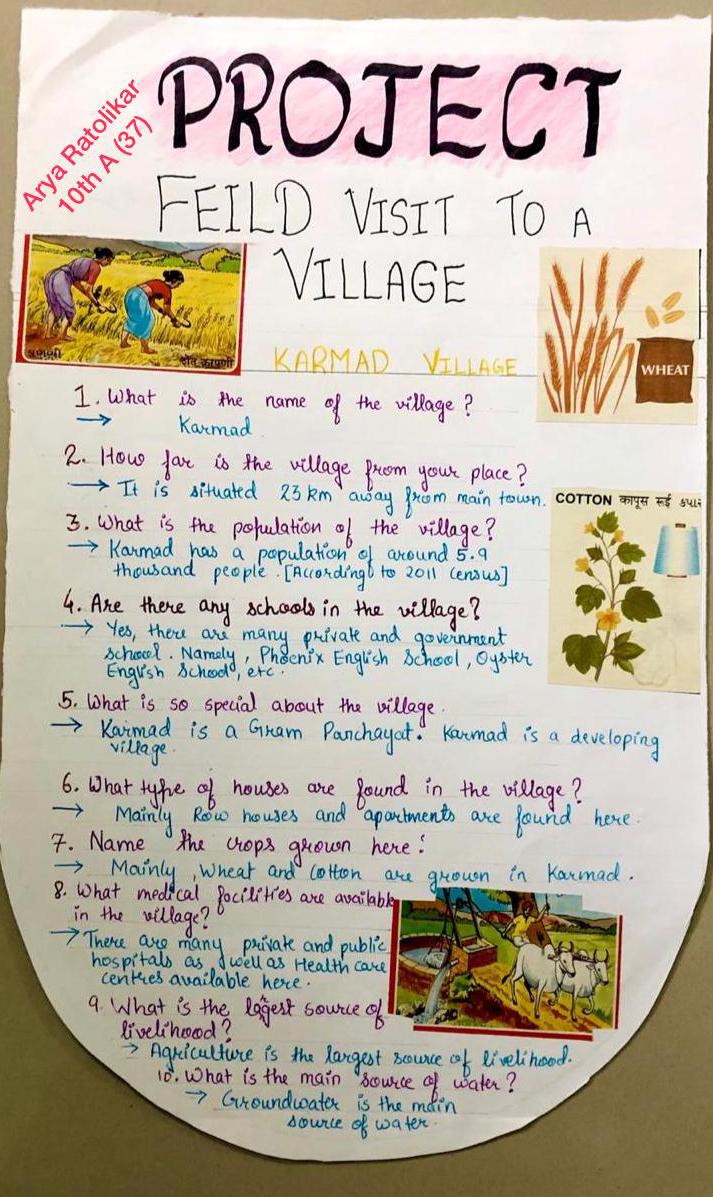 Arya Ratolikar
10th A (37)
PROJECT
FEILD VISIT TO A
VILLAGE
KARMAD VILLAGE
WHEAT
1. What is the name of the village?
→ Karmad
2. How far is the village from your place?
→ It is situated 23 km away from main town.
COTTON कापूस रूई કપાસ
3. What is the population of the village?
→ Karmad has a population of around 5.9
thousand people. [According to 2011 Census]
4. Are there any schools in the village?
→ Yes, there are many private and government
School. Namely, Phoenix English School, Oyster
English School, etc.
5. What is so special about the village.
→ Karmad is a Gram Panchayat. Karmad is a developing
village.
6. What type of houses are found in the village?
→ Mainly Row houses and apartments are found here.
7. Name the crops grown here:
→ Mainly, Wheat and Cotton are grown in Karmad.
8. What medical facilities are available
in the village?
→ There are many private and public
hospitals as well as Health care
centres available here.
9. What is the largest source of
livelihood?
→ Agriculture is the largest source of livelihood.
10. What is the main source of water?
→ Groundwater is the main
source of water.